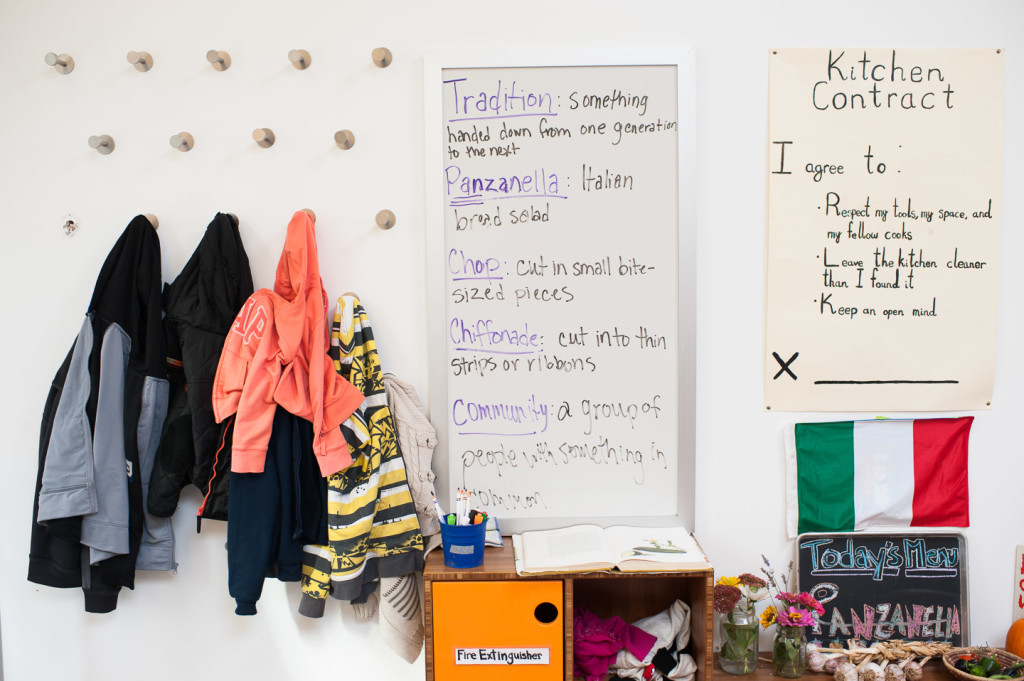 Tradition: something
handed down from one generation
to the next
Panzanella: Italian
bread salad
Chop: cut in small bite-
sized pieces
Chiffonade: cut into thin
strips or ribbons
Community: a group of
people with something in
common
Kitchen
Contract
I agree to:
· Respect my tools, my space, and
my fellow cooks
· Leave the kitchen cleaner
than I found it
· Keep an open mind
X
Today's Menu
PANZANELLA
Fire Extinguisher